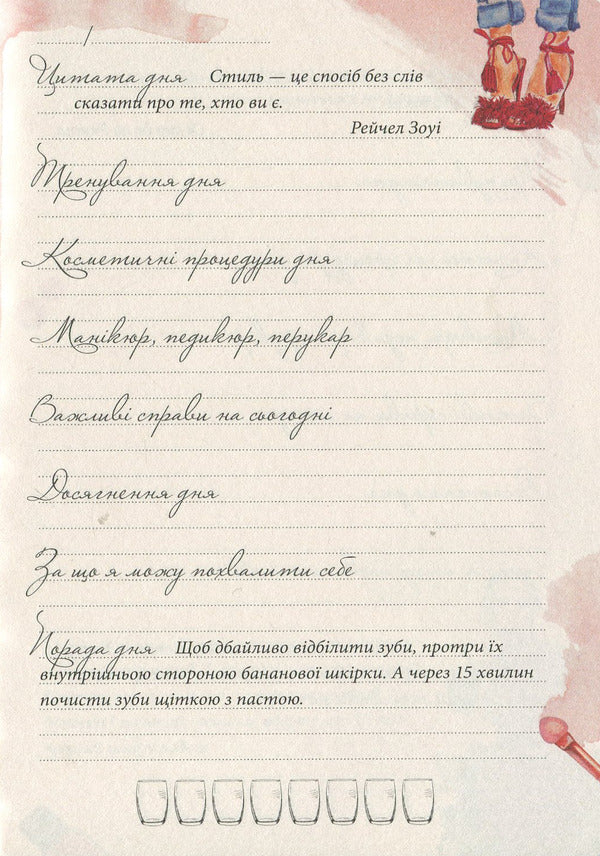 /
Цитата дня Стиль — це спосіб без слів
сказати про те, хто ви є.
Рейчел Зоуі
Тренування дня
Косметичні процедури дня
Манікюр, педикюр, перукар
Важливі справи на сьогодні
Досягнення дня
За що я можу похвалити себе
Порада дня Щоб дбайливо відбілити зуби, протри їх
внутрішньою стороною бананової шкірки. А через 15 хвилин
почисти зуби щіткою з пастою.